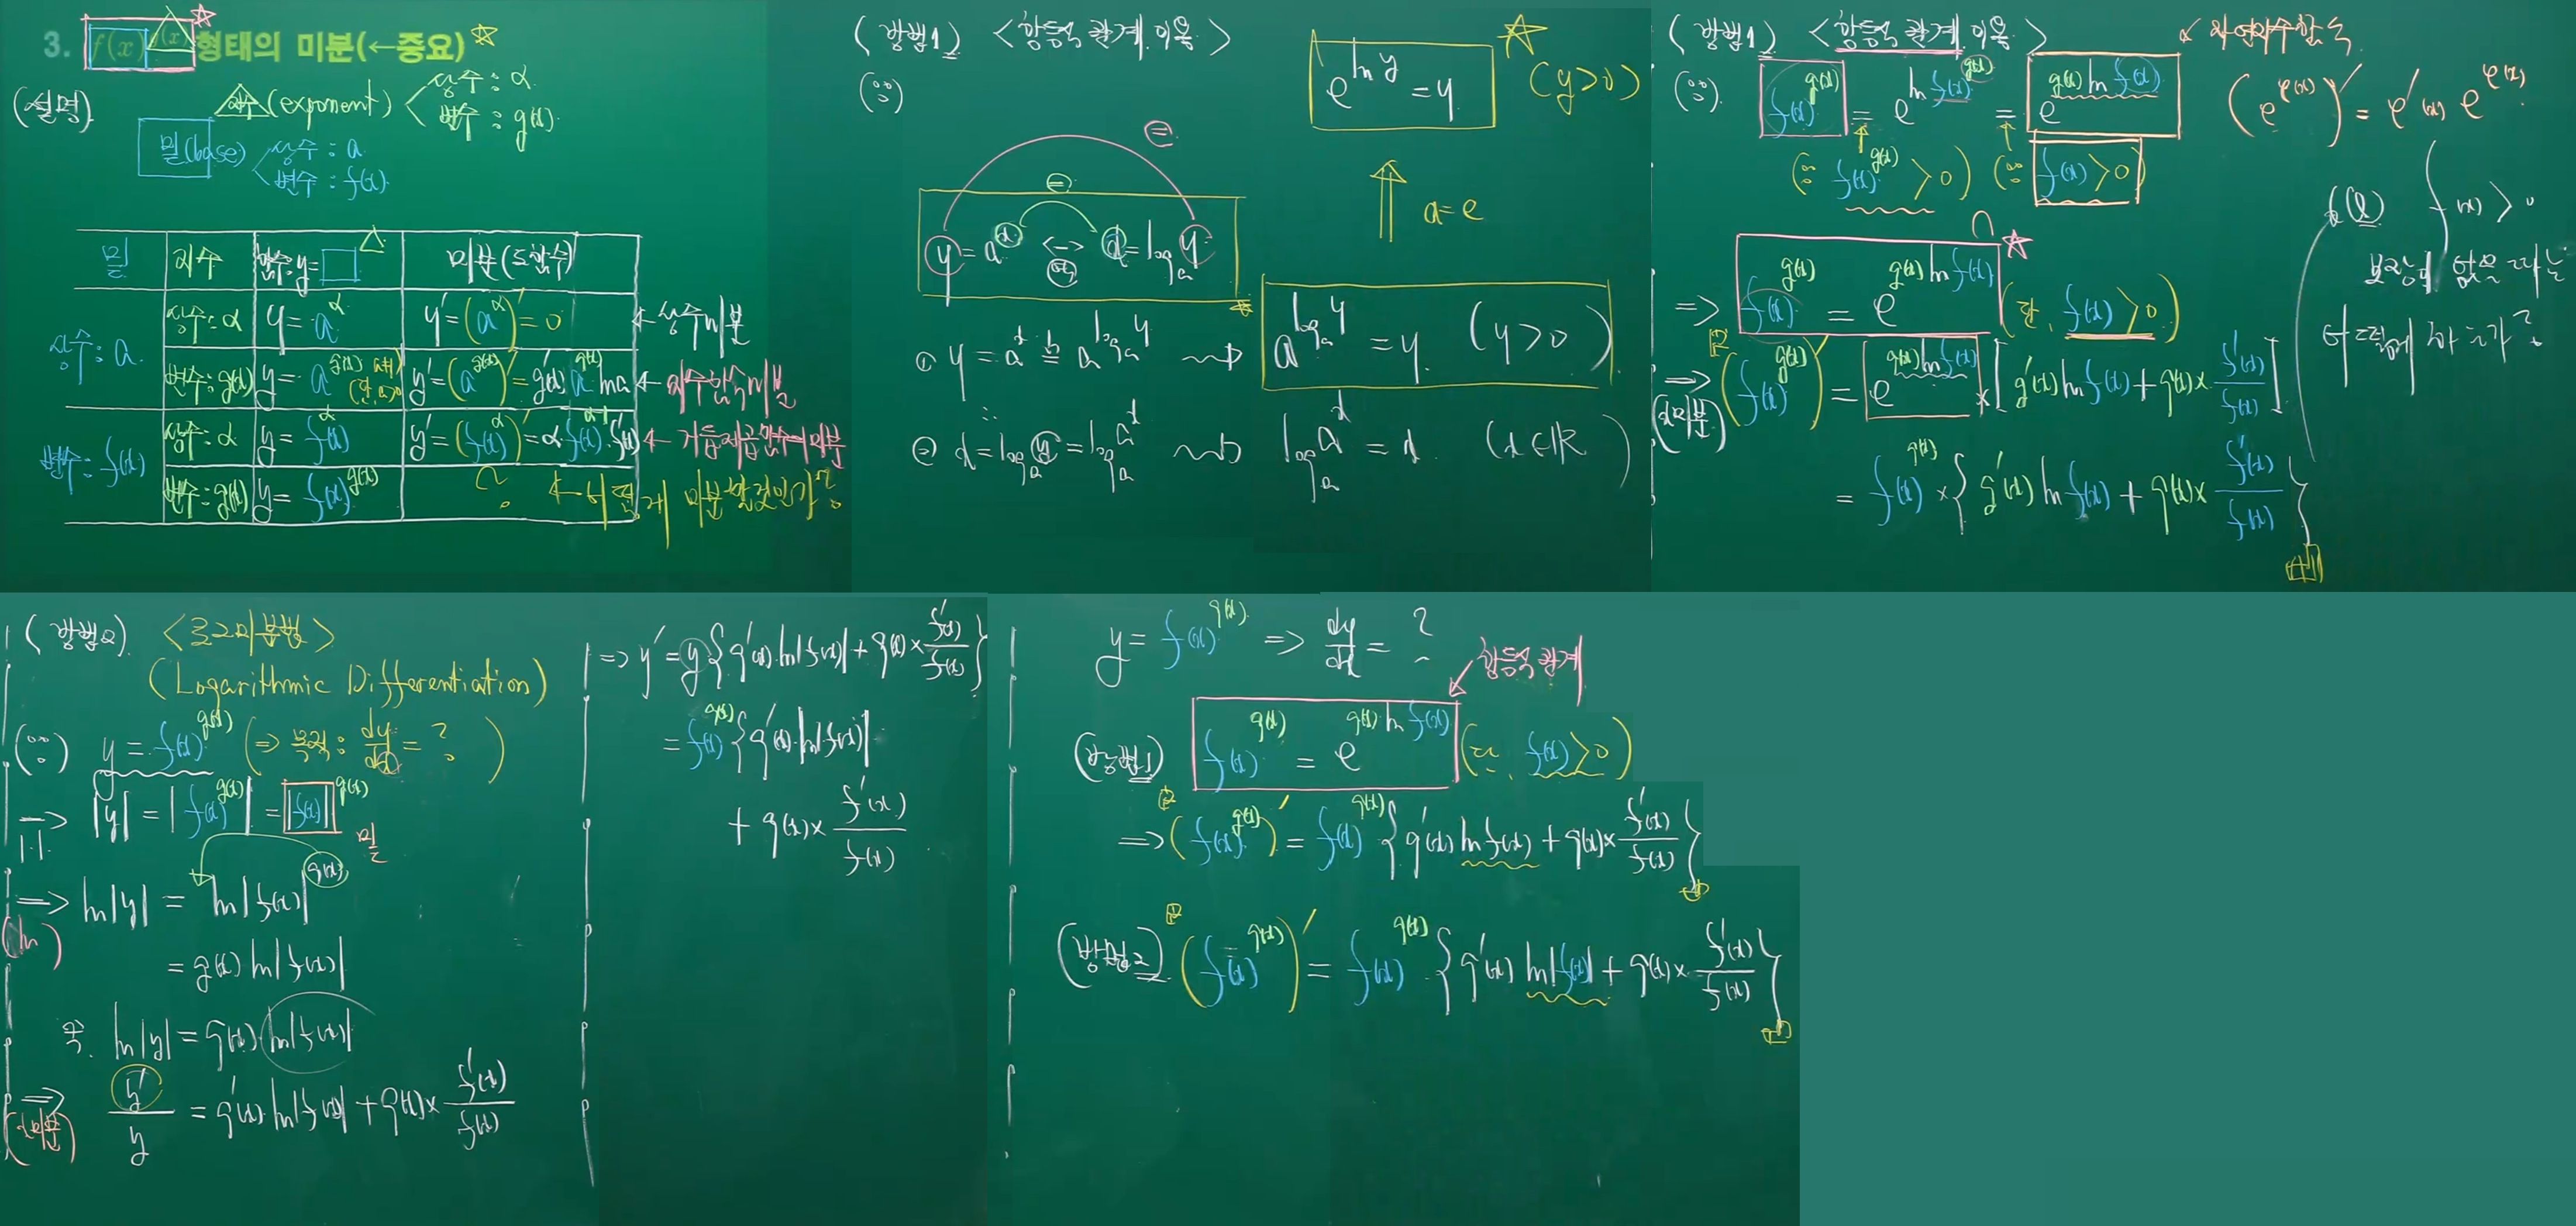 3. f(x)^{g(x)} 형태의 미분(←중요) ☆
(설명)
지수(exponent) < 상수 : α
변수 : g(x)
밑(base) < 상수 : a
변수 : f(x)
밑 | 지수 | 함수 y=□^△ | 미분(도함수)
상수 : a | 상수 : α | y = a^α | y' = (a^α)' = 0 ← 상수미분
변수 : g(x) | y = a^{g(x)} | y' = (a^{g(x)})' = g'(x) a^{g(x)} ln a ← 지수함수미분
변수 : f(x) | 상수 : α | y = f(x)^α | y' = (f(x)^α)' = α f(x)^{α-1} f'(x) ← 거듭제곱함수미분
변수 : g(x) | y = f(x)^{g(x)} | ? ← 어떻게 미분할것인가?
(방법1) <항등식 관계 이용>
(∵)
y = a^x ⟷ x = log_a y
① y = a^x = a^{log_a y} ⇝ a^{log_a y} = y (y>0)
② x = log_a y = log_a a^x ⇝ log_a a^x = x (x∈ℝ)
e^{ln y} = y (y>0) ☆
⇑ a=e
(방법1) <항등식 관계 이용>
(∵) f(x)^{g(x)} = e^{ln f(x)^{g(x)}} = e^{g(x) ln f(x)}
(∵ f(x)^{g(x)} > 0) (∵ f(x) > 0)
자연지수함수
(e^{φ(x)})' = φ'(x) e^{φ(x)}
⇒ f(x)^{g(x)} = e^{g(x) ln f(x)} (단, f(x) > 0) ☆
⇒ (f(x)^{g(x)})' = e^{g(x) ln f(x)} × [g'(x) ln f(x) + g(x) × f'(x)/f(x)]
(x미분)
= f(x)^{g(x)} × {g'(x) ln f(x) + g(x) × f'(x)/f(x)}
(Q) f(x) > 0
보장이 없을 때는
어떻게 하는가?
(방법2) <로그미분법>
(Logarithmic Differentiation)
(∵) y = f(x)^{g(x)} (⇒ 목적 : dy/dx = ?)
⇒ |y| = |f(x)^{g(x)}| = |f(x)|^{g(x)}
| | 밑
⇒ ln|y| = ln|f(x)|^{g(x)}
(ln)
= g(x) ln|f(x)|
즉, ln|y| = g(x) ln|f(x)|
⇒ y'/y = g'(x) ln|f(x)| + g(x) × f'(x)/f(x)
(x미분)
⇒ y' = y {g'(x) ln|f(x)| + g(x) × f'(x)/f(x)}
= f(x)^{g(x)} {g'(x) ln|f(x)|
+ g(x) × f'(x)/f(x)
y = f(x)^{g(x)} ⇒ dy/dx = ?
항등식 관계
(방법1) f(x)^{g(x)} = e^{g(x) ln f(x)} (단, f(x) > 0)
⇒ (f(x)^{g(x)})' = f(x)^{g(x)} {g'(x) ln f(x) + g(x) × f'(x)/f(x)}
(방법2) (f(x)^{g(x)})' = f(x)^{g(x)} {g'(x) ln|f(x)| + g(x) × f'(x)/f(x)}